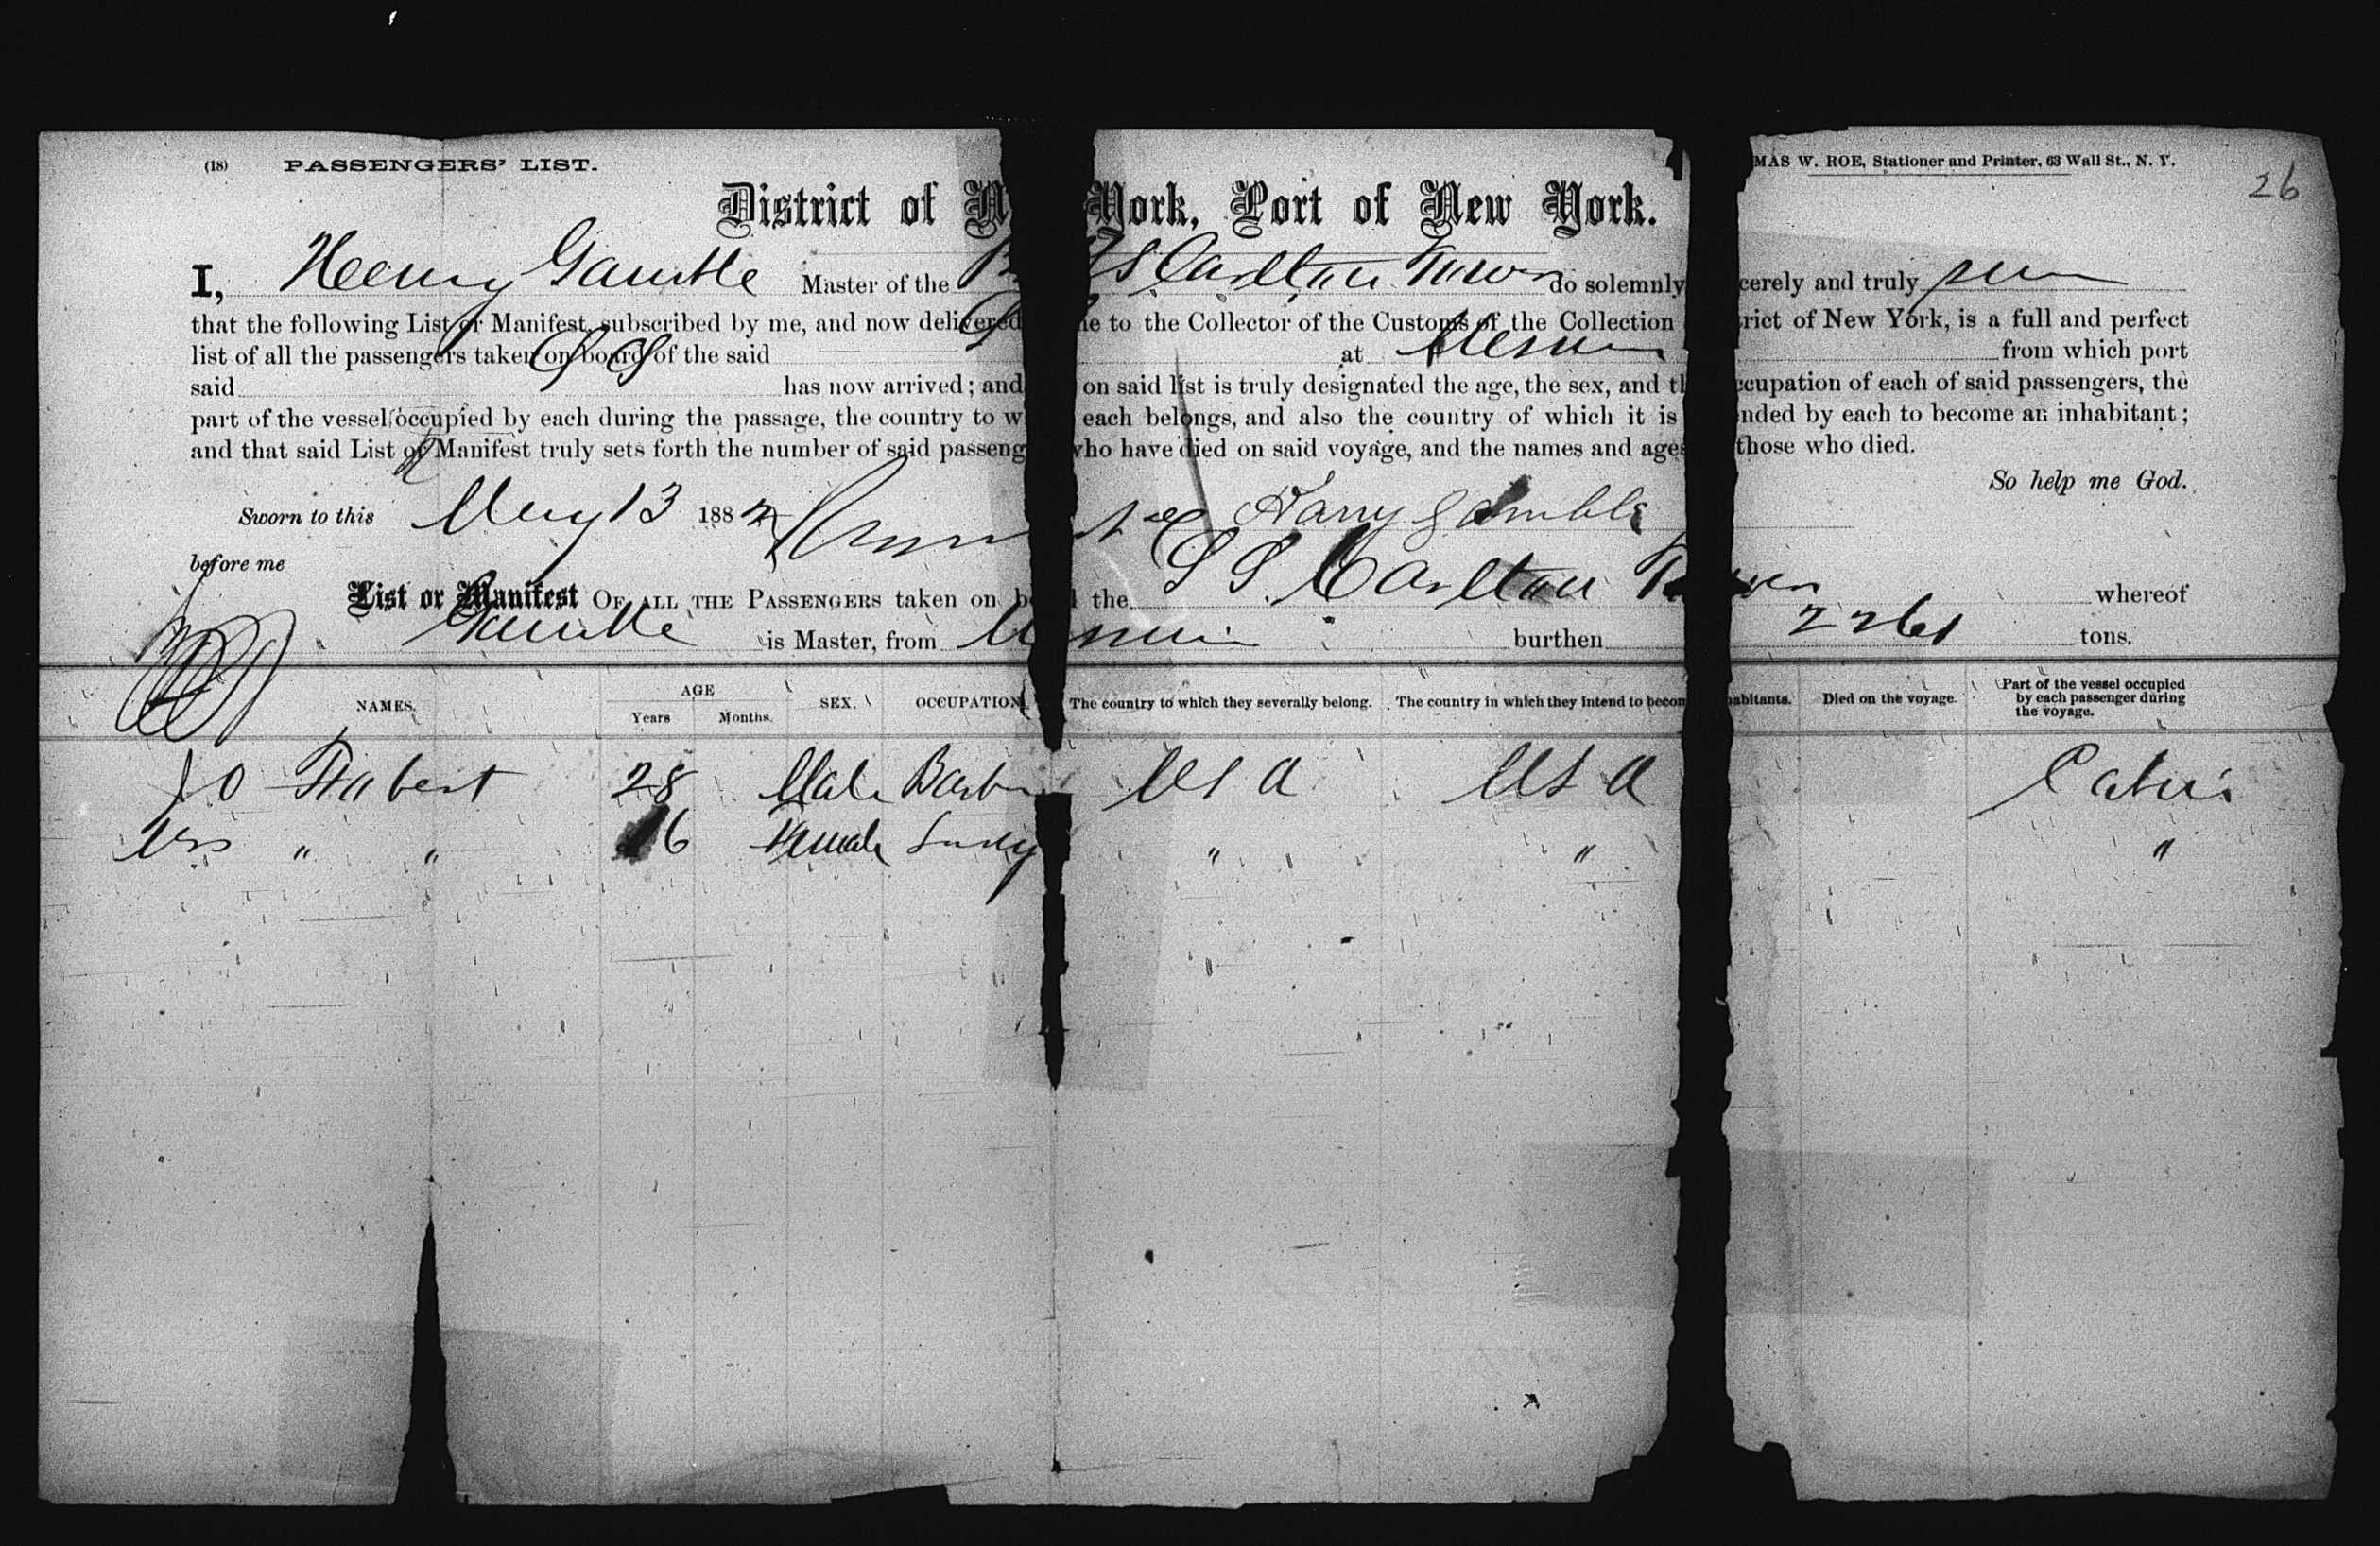 (18) PASSENGERS' LIST. MAS W. ROE, Stationer and Printer, 63 Wall St., N. Y.
26
District of N York, Port of New York.
I, Henry Gamble Master of the S Carlton Tower do solemnly cerely and truly
that the following List or Manifest, subscribed by me, and now delivered e to the Collector of the Customs of the Collection rict of New York, is a full and perfect
list of all the passengers taken on board of the said at from which port
said has now arrived; and on said list is truly designated the age, the sex, and th ccupation of each of said passengers, the
part of the vessel occupied by each during the passage, the country to w each belongs, and also the country of which it is nded by each to become an inhabitant;
and that said List or Manifest truly sets forth the number of said passeng who have died on said voyage, and the names and ages those who died.
So help me God.
Sworn to this May 13 1882 Harry Gamble
before me
List or Manifest OF ALL THE PASSENGERS taken on bo d the SS. Carlton Tower whereof
Gamble is Master, from burthen 2261 tons.
NAMES. AGE Years Months. SEX. OCCUPATION The country to which they severally belong. The country in which they intend to becom habitants. Died on the voyage. Part of the vessel occupied by each passenger during the voyage.
28 Male USA USA Cabin
" " 6 Female " " "